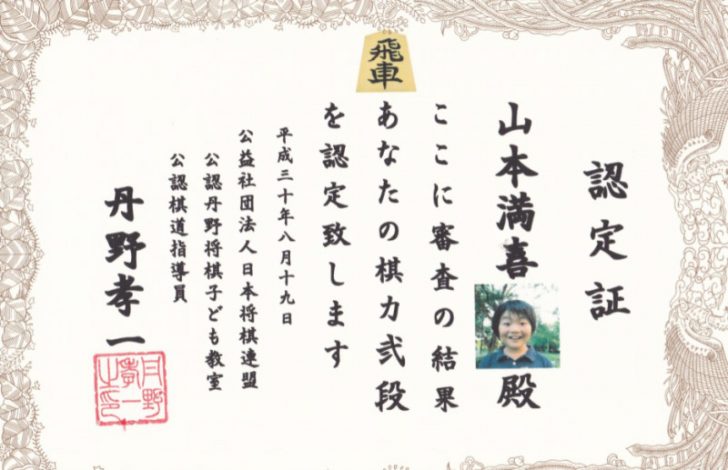 認定証
山本満喜殿
ここに審査の結果
あなたの棋力弐段
を認定致します
飛車
平成三十年八月十九日
公益社団法人日本将棋連盟
公認丹野将棋子ども教室
公認棋道指導員
丹野孝一
丹野孝一之印